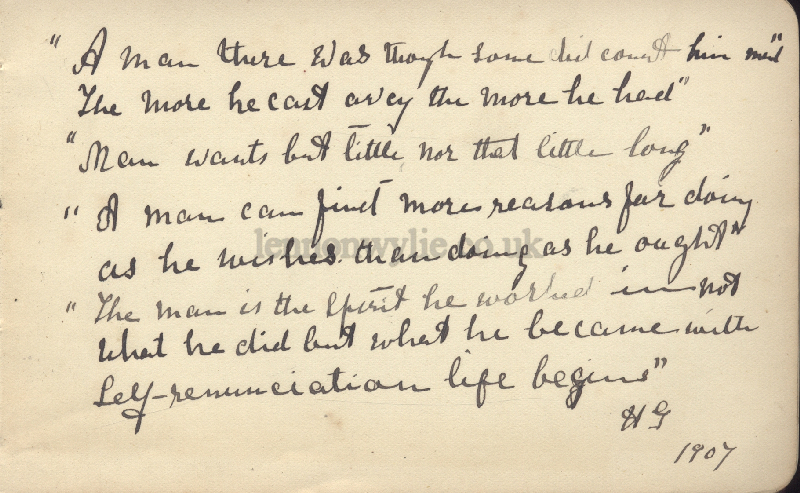 "A man there was though some did count him mad"
The more he cast away the more he had"
"Man wants but little, nor that little long"
"A man can find more reasons for doing
as he wishes than doing as he ought"
lennonwylie.co.uk
"The man is the spirit he worked in not
what he did but what he became with
Self-renunciation life begins"
HG
1907